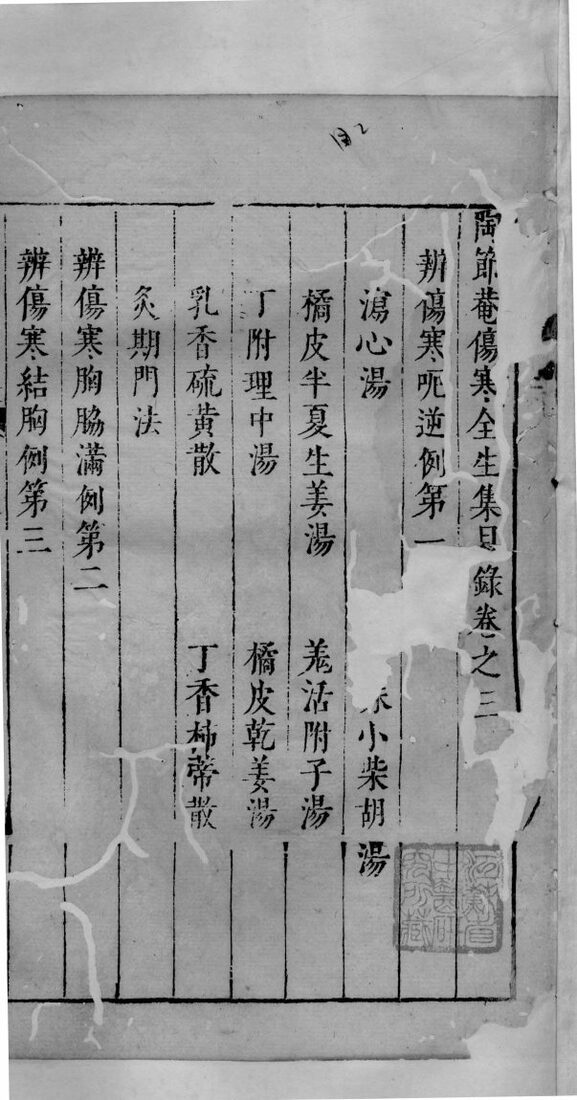 陶節菴傷寒全生集目錄卷之三
辨傷寒呃逆例第一
瀉心湯 小柴胡湯
橘皮半夏生姜湯 羗活附子湯
丁附理中湯 橘皮乾姜湯
乳香硫黃散 丁香柿蒂散
灸期門法
辨傷寒胸脇滿例第二
辨傷寒結胸例第三